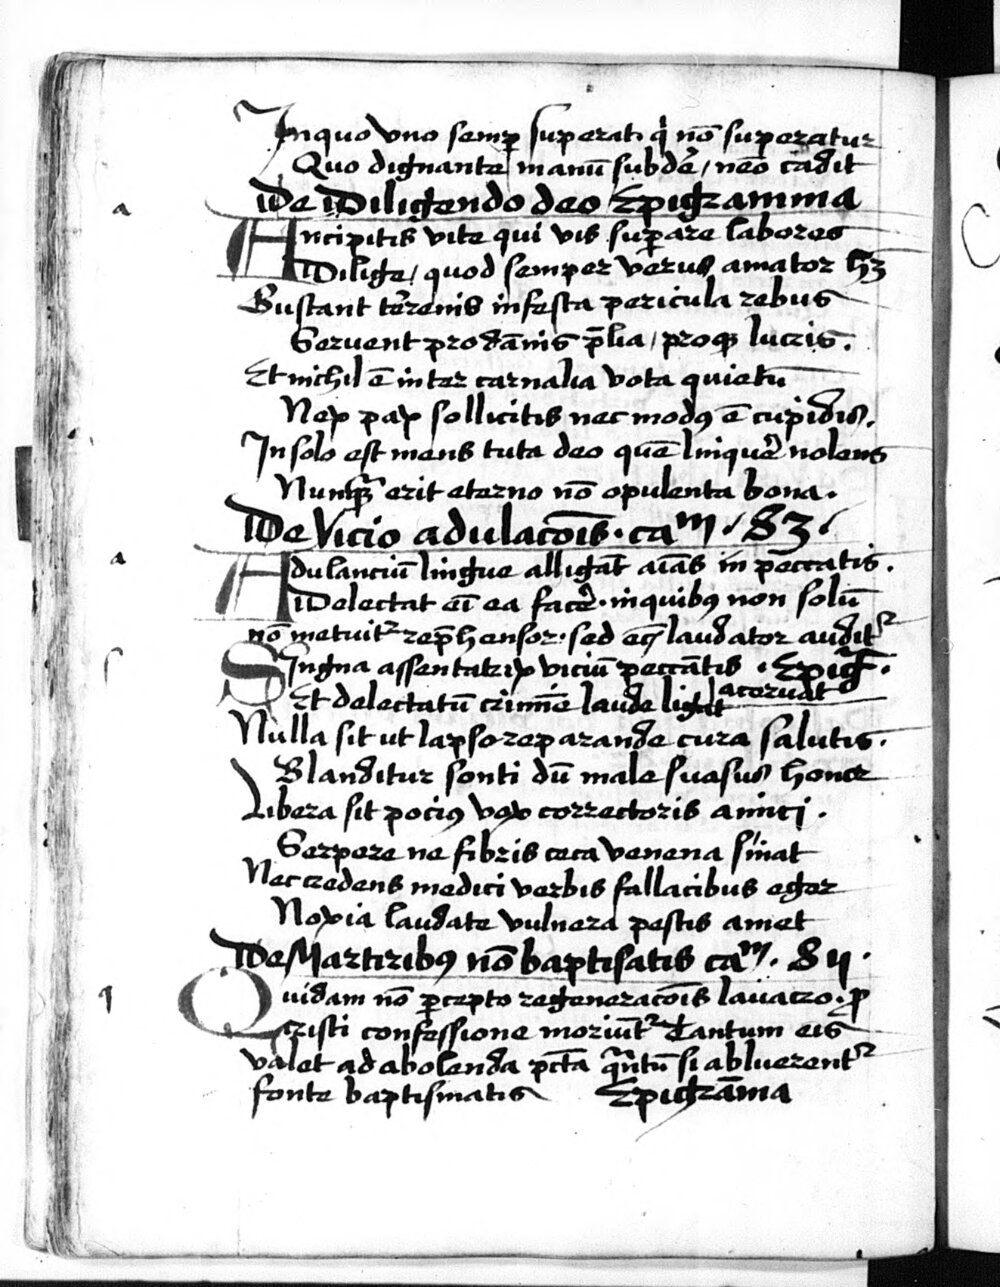 In quo vno semꝑ superat, qͥ nō superatur
Quo dignante manū subdēͥ / neō cadit
De Diligendo deo Epigramma
a Ancipitis vite qui vis suꝑare labores
Dilige / quod semper verus amator hꝫ
Gustant t'renis infesta pericula rebus
Seruent pro dānis p̄lia / proqꝫ lucris.
Et nichil ē inter carnalia vota quietū
Nex pax sollicitis nec modꝰ ē cupidis.
In solo est mens tuta deo quē linquē nolens
Nunqᷓ erit eterno nō opulenta bona.
De Vicio adulacōis. caᵐ. 83.
a Adulanciū lingue alligāt aīas in peccatis.
Delectat eī ea facē. in quibꝰ non solū
nō metuitᷣ rep̄hensor. sed ecͣ laudator auditᷣ
s Singna assentatrix viciū peccātis . Epigͬ.
Et delectatū crimīe laude ligat acoruat
Nulla sit ut lapso reparande cura salutis.
Blanditur sonti dū male suasus honor
Libera sit pociꝰ vox correctoris amici.
Serpere ne fibris ceca venena sīnat
Nec credens medici verbis fallacibus eger
Noxia laudate vulnera pestis amet
De Martiribꝰ nō baptisatis caᵐ. 84.
q Quidam nō ꝑcepto regeneracōis lauacro. ꝓ
cristi confessione moriūtᷣ Tantum eis
valet ad abolenda pctā qᷓntū si abluerentᷣ
fonte baptismatis Epigrāma